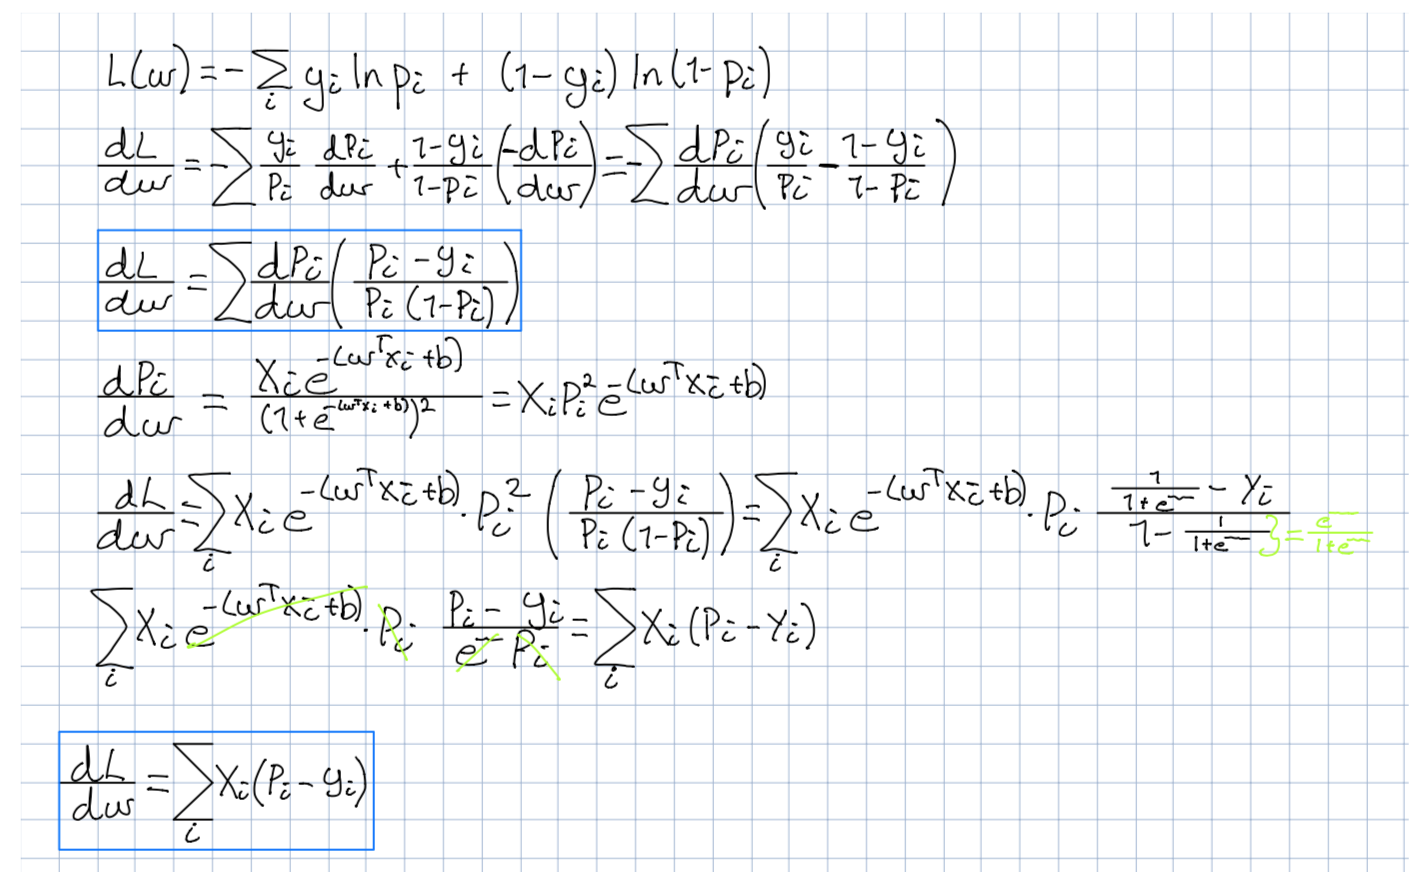 L(w) = - ∑_i y_i ln p_i + (1 - y_i) ln(1 - p_i)
dL/dw = - ∑ y_i/P_i dP_i/dw + (1-y_i)/(1-p_i) (-dP_i/dw) = - ∑ dP_i/dw (y_i/P_i - (1-y_i)/(1-P_i))
dL/dw = ∑ dP_i/dw ((P_i - y_i)/(P_i (1-P_i)))
dP_i/dw = X_i e^{-(w^T x_i + b)}/(1+e^{-(w^T x_i + b)})^2 = X_i P_i^2 e^{-(w^T x_i + b)}
dL/dw = ∑_i X_i e^{-(w^T x_i + b)} · P_i^2 ((P_i - y_i)/(P_i (1-P_i))) = ∑_i X_i e^{-(w^T x_i + b)} · P_i (1/(1+e^{~}) - Y_i)/(1 - 1/(1+e^{~})) } = e^{~}/(1+e^{~})
∑_i X_i e^{-(w^T x_i + b)} · P_i (P_i - y_i)/(e^{~} P_i) = ∑_i X_i (P_i - Y_i)
dL/dw = ∑_i X_i (P_i - y_i)